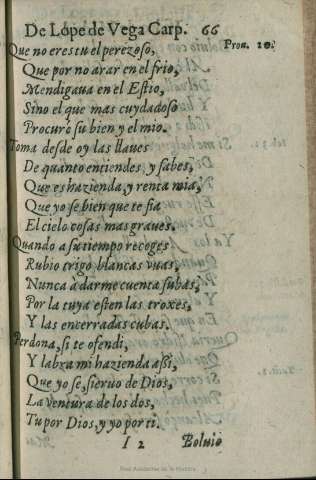 De Lope de Vega Carp. 66
Que no eres tu el perezoso, Prou. 20.
Que por no arar en el frio,
Mendigaua en el Estio,
Sino el que mas cuydadoso
Procurò su bien y el mio.
Toma desde oy las llaues
De quanto entiendes y sabes,
Que es hazienda, y renta mia,
Que yo se bien que te fia
El cielo cosas mas graues.
Quando a su tiempo recoges
Rubio trigo, blancas vuas,
Nunca a darme cuenta subas,
Por la tuya esten las troxes,
Y las encerradas cubas.
Perdona, si te ofendi,
Y labra mi hazienda assi,
Que yo se, sieruo de Dios,
La ventura de los dos,
Tu por Dios, y yo por ti.
I 2 Boluio
Real Academia de la Historia